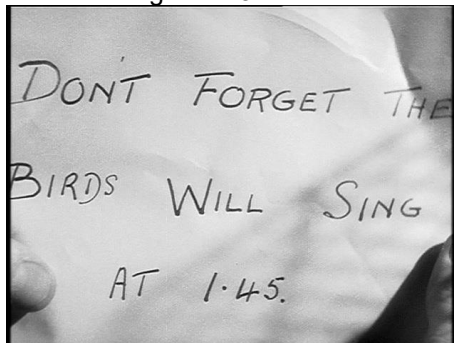 DON'T FORGET THE
BIRDS WILL SING
AT 1·45.